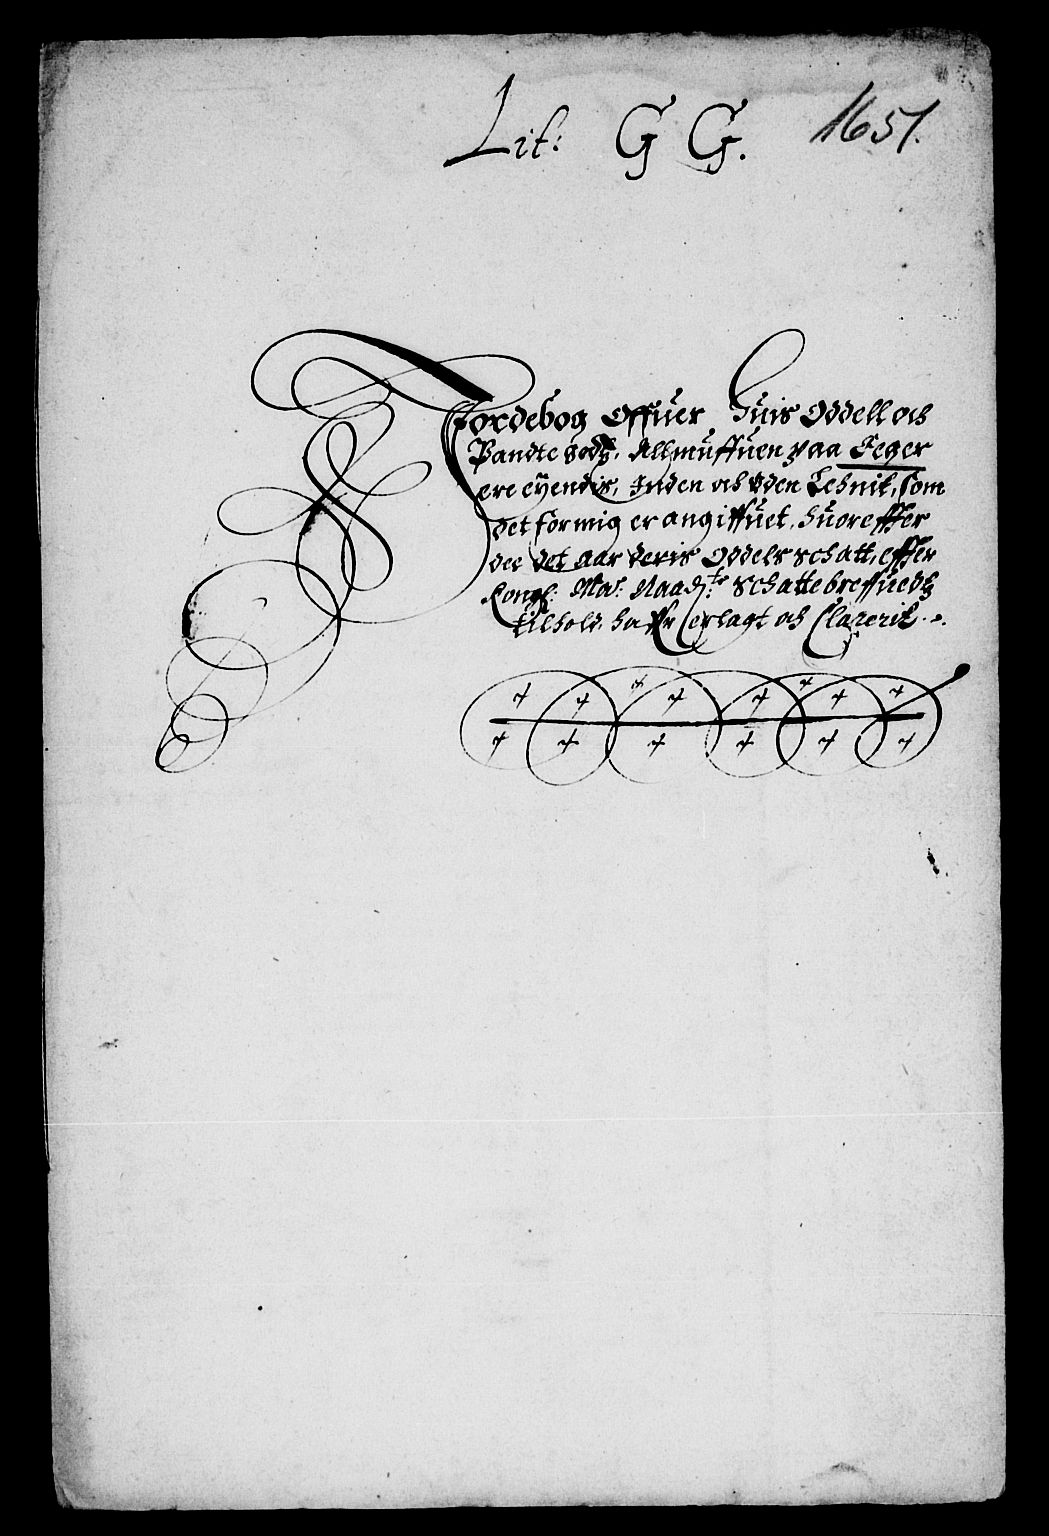 Lit: G G. 1651.
Jordebog Offuer Huis Oddell och
Pandte godtz, Allmuffuen paa Eeger
ere eyendis, Inden och Vden Lehnit, som
det for mig er angiffuet, huoreffter
dee det aar deris Oddels schatt, effter
Kongl: Maj: Naadte schattebreffuedtz
tilhold, haffr erlagt och Clarerit.